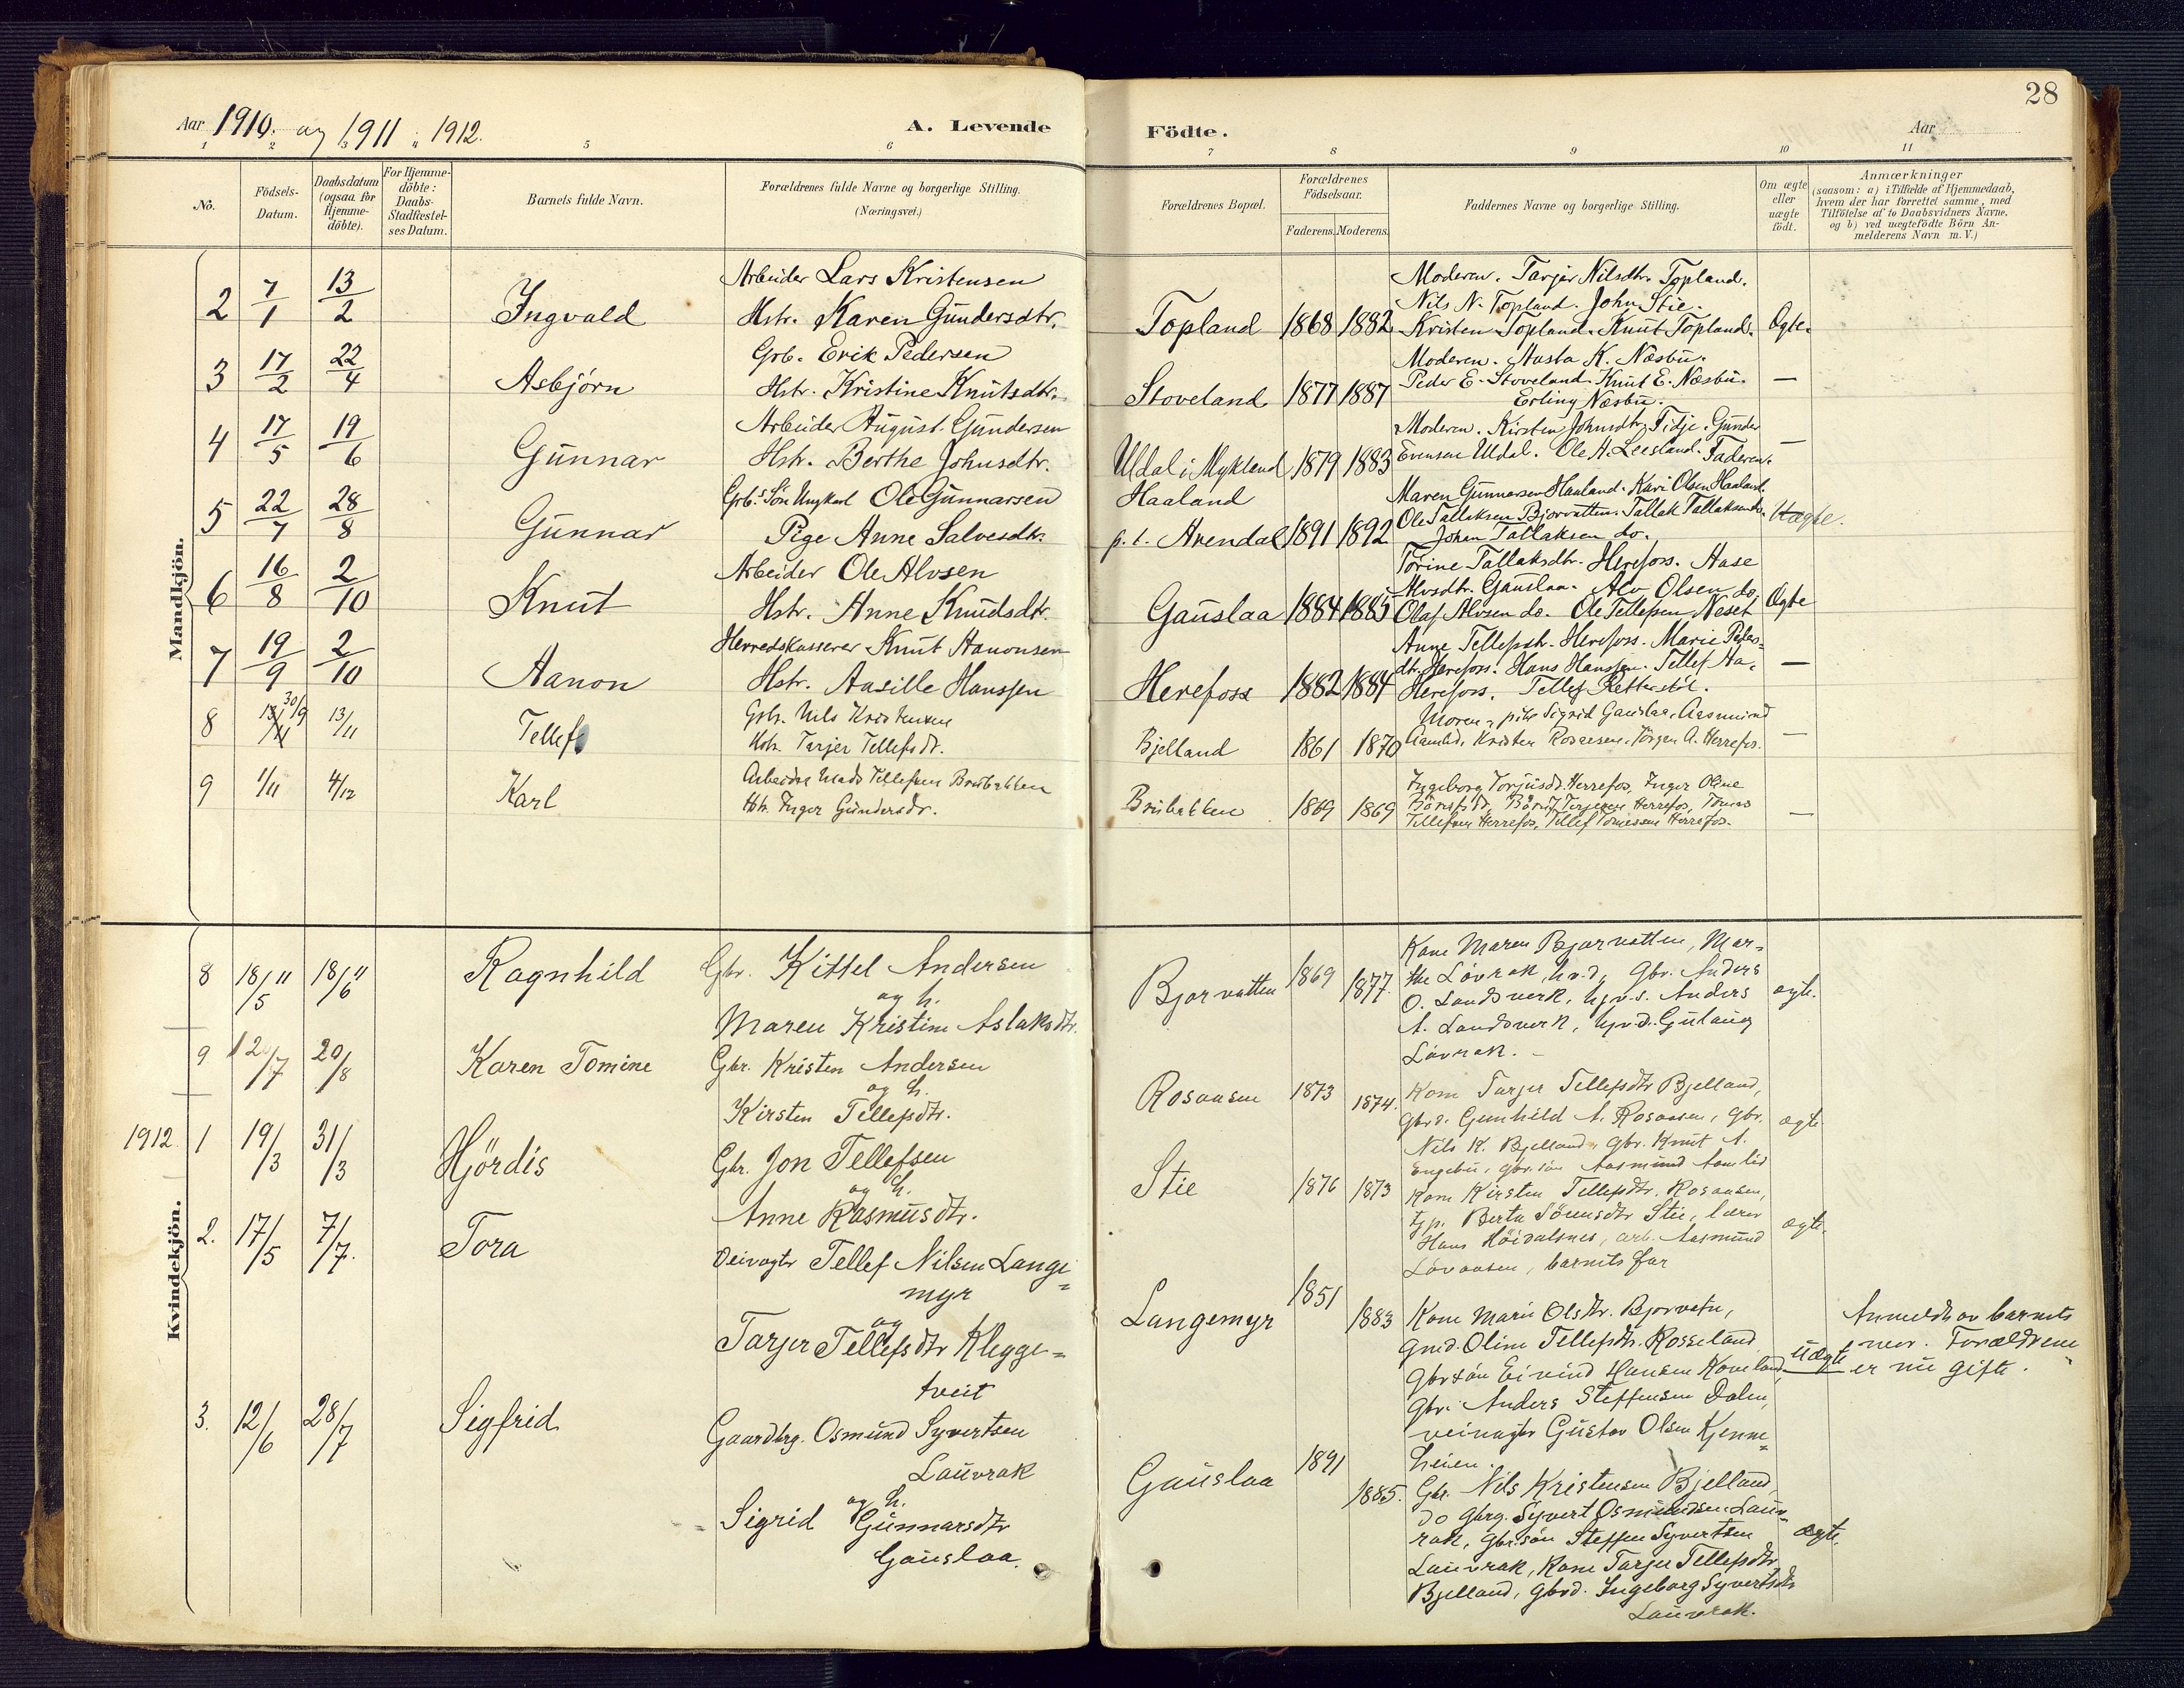 28
Aar 1910. og 1911 " 1912.
A. Levende Födte.
Aar
1 2 3 4 5 6 7 8 9 10 11
No.
Födsels-Datum.
Daabsdatum (ogsaa for Hjemme-döbte).
For Hjemme-döbte: Daabs-Stadfæstel-ses Datum.
Barnets fulde Navn.
Forældrenes fulde Navne og borgerlige Stilling.
(Næringsvei.)
Forældrenes Bopæl.
Forældrenes Födselsaar.
Faderens. Moderens.
Faddernes Navne og borgerlige Stilling.
Om ægte eller uægte födt.
Anmærkninger
(saasom: a) i Tilfælde af Hjemmedaab,
hvem der har forrettet samme, med
Tilföielse af to Daabsvidners Navne.
og b) ved uægtefödte Börn An-
melderens Navn m. V.)
Mandkjön.
2 7/1 13/2 Ingvald
Arbeider Lars Kristensen
Hstr. Karen Gundersdtr.
Topland 1868 1882
Moderen. Tarjer Nilsdtr. Topland.
Nils N. Topland. John Stie.
Kristen Topland. Knut Topland.
Ægte.
3 17/2 22/4 Asbjørn
Grb. Erik Pedersen
Hstr. Kristine Knutsdtr.
Stoveland 1877 1887
Moderen. Aasta K. Næsbu.
Peder E. Stoveland. Knut E. Næsbu.
Erling Næsbu.
—
4 17/5 19/6 Gunnar
Arbeider August Gundersen
Hstr. Berthe Johnsdtr.
Uldal i Mykland 1879 1883
Moderen. Kirsten Johnsdtr. Tidje. Gunder
Evensen Uldal. Ole A. Leesland. Faderen.
—
5 22/7 28/8 Gunnar
Grb.s Søn Ungkarl Ole Gunnarsen
Pige Anne Salvesdtr.
Haaland
p. t. Arendal 1891 1892
Maren Gunnarsen Haaland. Kari Olsen Haaland.
Ole Tallaksen Bjorvatten. Tallak Tallaksen do.
Johan Tallaksen do.
Uægte.
6 16/8 2/10 Knut
Arbeider Ole Alvsen
Hstr. Anne Knudsdtr.
Gauslaa 1884 1885
Torine Tallaksdtr. Herefoss. Aase
Alvsdtr. Gauslaa. Alv Olsen do.
Olaf Alvsen do. Ole Tellefsen Neset
Ægte
7 19/9 2/10 Aanon
Herredskasserer Knut Aanonsen
Hstr. Aasille Hanssen
Herefoss 1882 1884
Anne Tellefsdtr. Herefoss. Marie Peders-
dtr. Herefoss. Hans Hanssen. Tellef Aa.
Herefoss. Tellef Retterstøl.
—
8 30/9 13/11 Tellef
Grb. Nils Kristensen
Hstr. Tarjer Tellefsdr.
Bjelland 1861 1870
Moren, pike Sigrid Gauslaa, Aasmund
Aamlid, Kristen Rosaasen, Jörgen A. Herrefos.
—
9 1/11 4/12 Karl
Arbeider Mads Tellefsen Brubakken
Hstr. Inger Gundersdr.
Brubakken 1869 1869
Ingeborg Torjusdr. Herrefos, Inger Oline
Tellefsen Herrefos, Tellef Tomessen Herrefos.
—
Kvindekjön.
8 18/5 11 18/6 11 Ragnhild
Gbr. Kittel Andersen
og h.
Maren Kristine Aslaksdtr.
Bjorvatten 1869 1877.
Kone Maren Bjorvatten, Mar-
the Lövrak, hv.d, Gbr. Anders
O. Landsverk, hjv.s. Anders
A. Landsverk, hjv.d. Gulaug
Lövrak.
ægte.
9 12/7 20/8 Karen Tomine
Gbr. Kristen Andersen
og h.
Kirsten Tellefsdtr.
Rosaasen 1873 1874.
Kone Tarjer Tellefsdtr Bjelland,
Gbr.d. Gunhild A. Rosaasen, Gbr.
Nils K. Bjelland, Gbr. Knut A.
Engebu, gbr.sön Aasmund Aamlid
ægte
1912 1 19/3 31/3 Hjördis
Gbr. Jon Tellefsen
og h.
Anne Rasmusdtr.
Stie 1876 1873
Kone Kirsten Tellefsdtr. Rosaasen,
tjp. Berta Sörensdtr Stie, lærer
Hans Höidalsnes, arb. Aasmund
Lövaasen, barnets far
ægte.
2. 17/5 7/7. Tora
Veivogter Tellef Nilsen Lange-
myr
og
Tarjer Tellefsdtr Klegge-
tveit
Langemyr 1851 1883
Kone Marie Olsdtr. Bjorvatn,
gmd. Oline Tellefsdtr. Rosseland
Gbr sön Eivind Hansen Kaveland
Gbr. Anders Steffensen Dalen,
veivogter Gustav Olsen Kjenne-
heien.
Uægte
Anmeldt av barnets
mor. Forældrene
er nu gifte.
3. 12/6 28/7 Sigfrid
Gaardbrg. Osmund Syvertsen
Lauvrak
og h.
Sigrid Gunnarsdtr
Gauslaa.
Gauslaa 1891 1885.
Gbr. Nils Kristensen Bjelland,
do Gbrg. Syvert Osmundsen Lauv-
rak, gbr.sön Steffen Syvertsen
Lauvrak, Kone Tarjer Tellefsdtr
Bjelland, gbrd. Ingeborg Syvertsdtr
Lauvrak.
ægte.